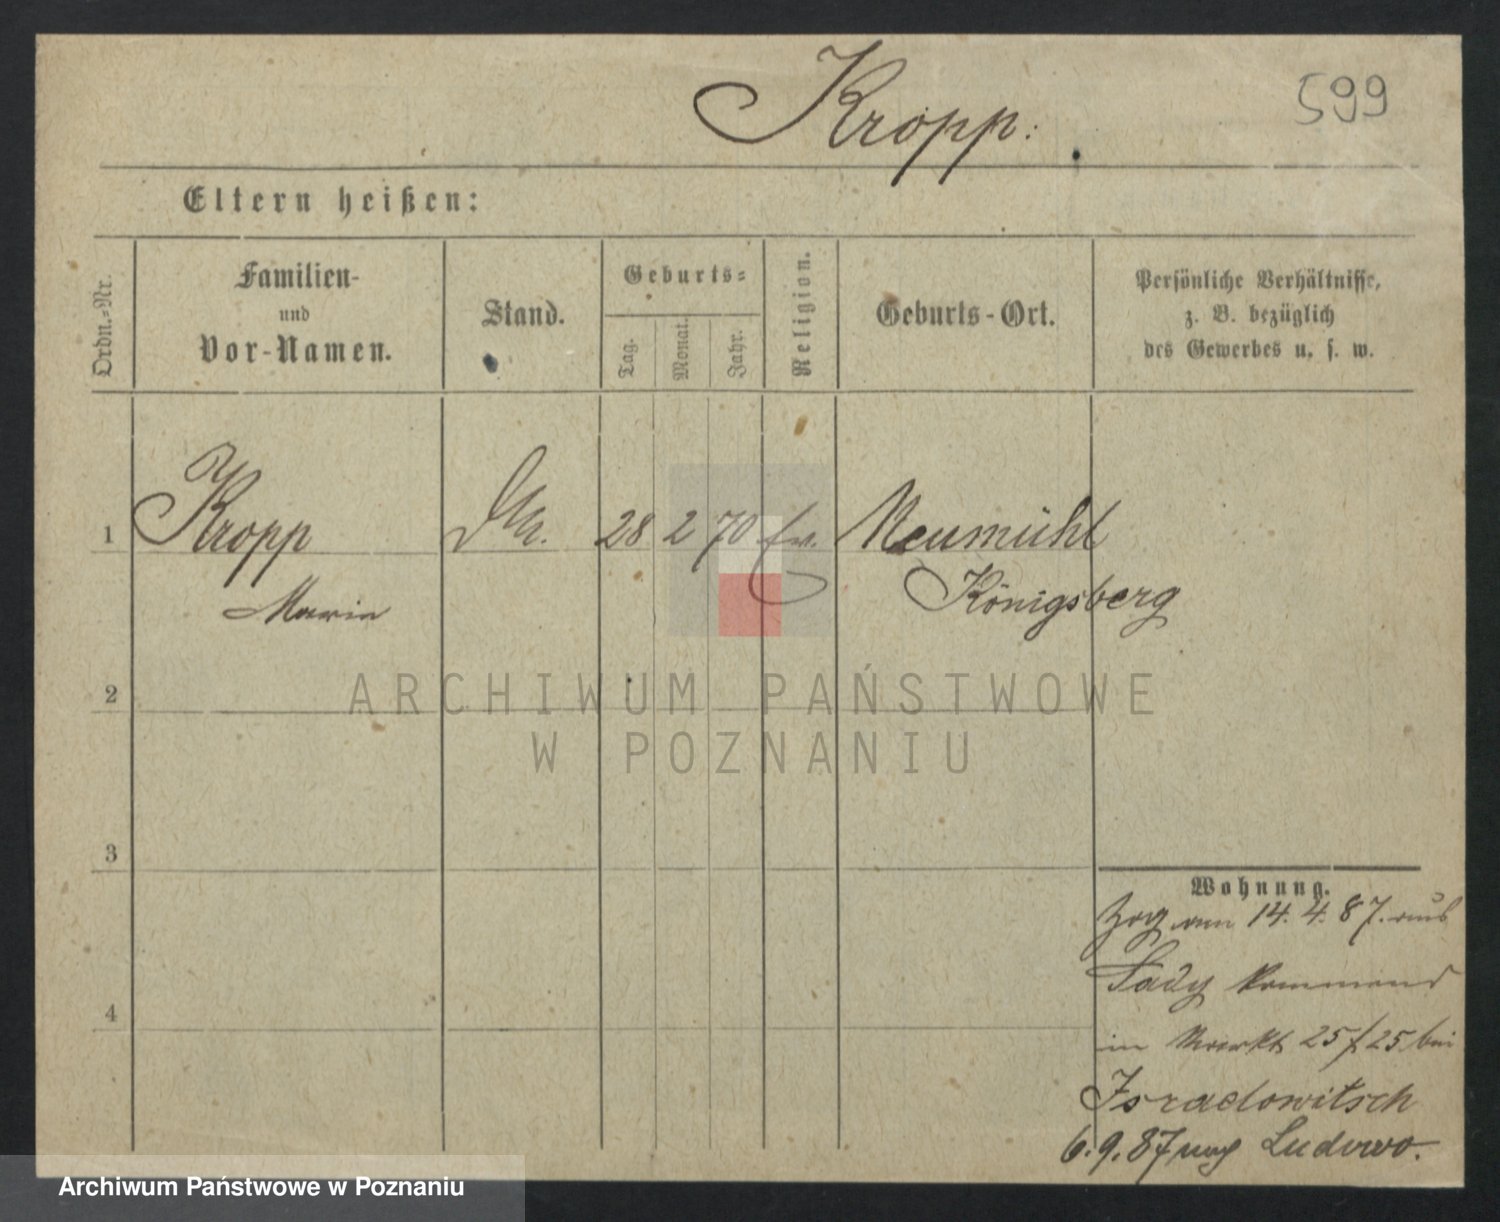 Kropp:
599
Eltern heißen:
Ordn.-Nr.
Familien-
und
Vor-Namen.
Stand.
Geburts-
Tag.
Monat.
Jahr.
Religion.
Geburts-Ort.
Persönliche Verhältnisse,
z. B. bezüglich
des Gewerbes u. s. w.
1
Kropp
28 2 70 ev.
Neumühl
Marie
Königsberg
2
ARCHIWUM PAŃSTWOWE
W POZNANIU
3
Wohnung.
Zog am 14.4.87. aus
kommend
im Markt 25/25 bei
4
Israelowitsch
6.9.87 nach Ludwo.
Archiwum Państwowe w Poznaniu